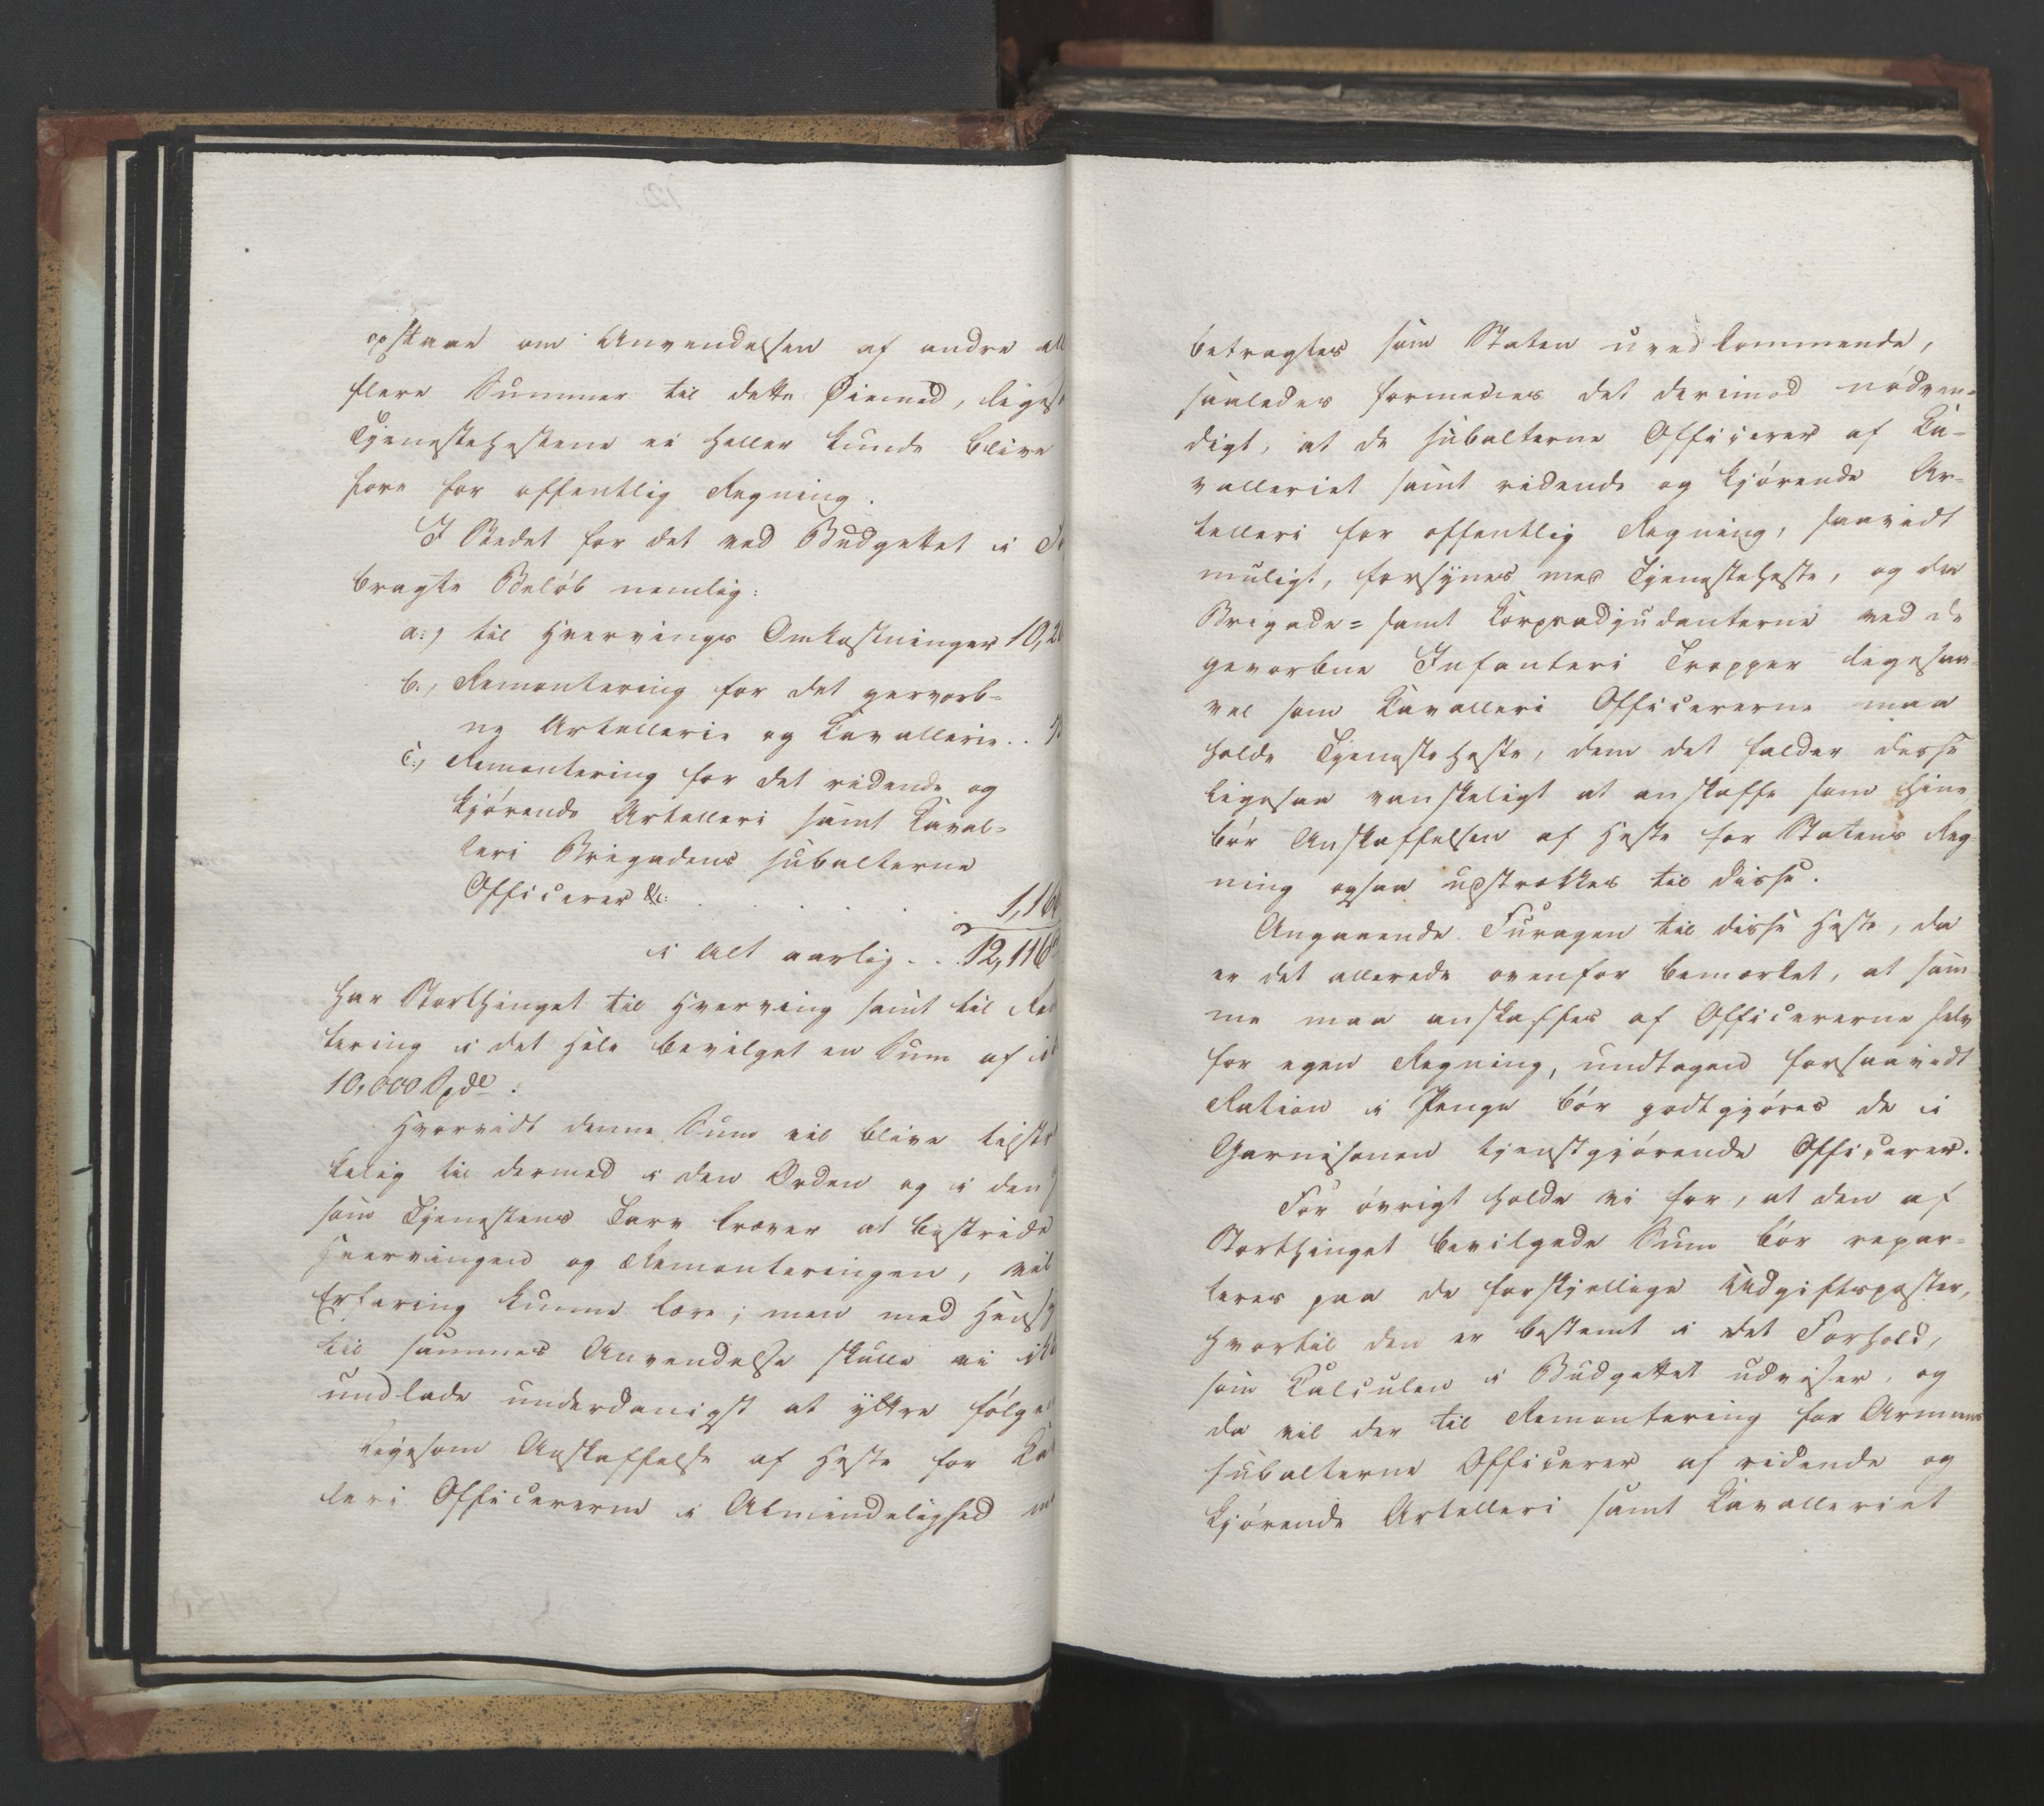 opstaae om Anvendelsen af andre ell
flere Summer til dette Øiemed, ligesa
Tjenestehestene ei heller kunde blive
fore for offentlig Regning.
I Stedet for det ved Budgettet i
bragte Beløb nemlig:
a:, til Hvervings Omkostninger 10,2
b., Remontering for det gevorb-
ne Artellerie og Kavallerie..
c:, Remontering for det ridende og
kjørende Artelleri samt Kaval-
leri Brigadens subalterne
Officerer &c: . . . . . . 1,160
i Alt aarlig . . 12,116
har Storthinget til Hverving samt til Re
tering i det Hele bevilget en Sum af
10,000 Spdl.
Hvorvidt denne Sum vil blive tilstr
kelig til dermed i den Orden og i den
som Tjenestens Tarv kræver at bestride
Hvervingen og Remonteringen, vil
Erfaring kunne lære; men med Hensy
til sammes Anvendelse skulle vi ikk
undlade underdanigst at yttre følge
Ligesom Anskaffelse af Heste for Ka
leri Officererne i Almindelighed
betragtes som Staten uvedkommende,
saaledes formenes det derimod nödven-
digt, at de subalterne Officerer af Ka-
valleriet samt ridende og kjörende Ar-
telleri for offentlig Regning, saavidt
muligt, forsynes med Tjenesteheste, og da
Brigade- samt Korpsadjudanterne ved de
gevorbne Infanteri Tropper ligesaa-
vel som Kavalleri Officererne maa
holde Tjenesteheste, dem det falder disse
ligesaa vanskeligt at anskaffe som hine
bör Anskaffelsen af Heste for Statens Reg
ning ogsaa udstrækkes til disse.
Angaaende Furagen til disse Heste, da
er det allerede ovenfor bemærket, at sam-
me maa anskaffes af Officererne selv
for egen Regning, undtagen forsaavidt
Ration i Penge bör godtgjöres de i
Garnisonen tjenstgjörende Officerer.
For övrigt holde vi for, at den af
Storthinget bevilgede Sum bör repar-
teres paa de forskjellige Udgiftsposter,
hvortil den er bestemt i det Forhold,
som Kalculen i Budgettet udviser, og
da vil der til Remontering for Armeens
subalterne Officerer af ridende og
kjörende Artelleri samt Kavalleriet